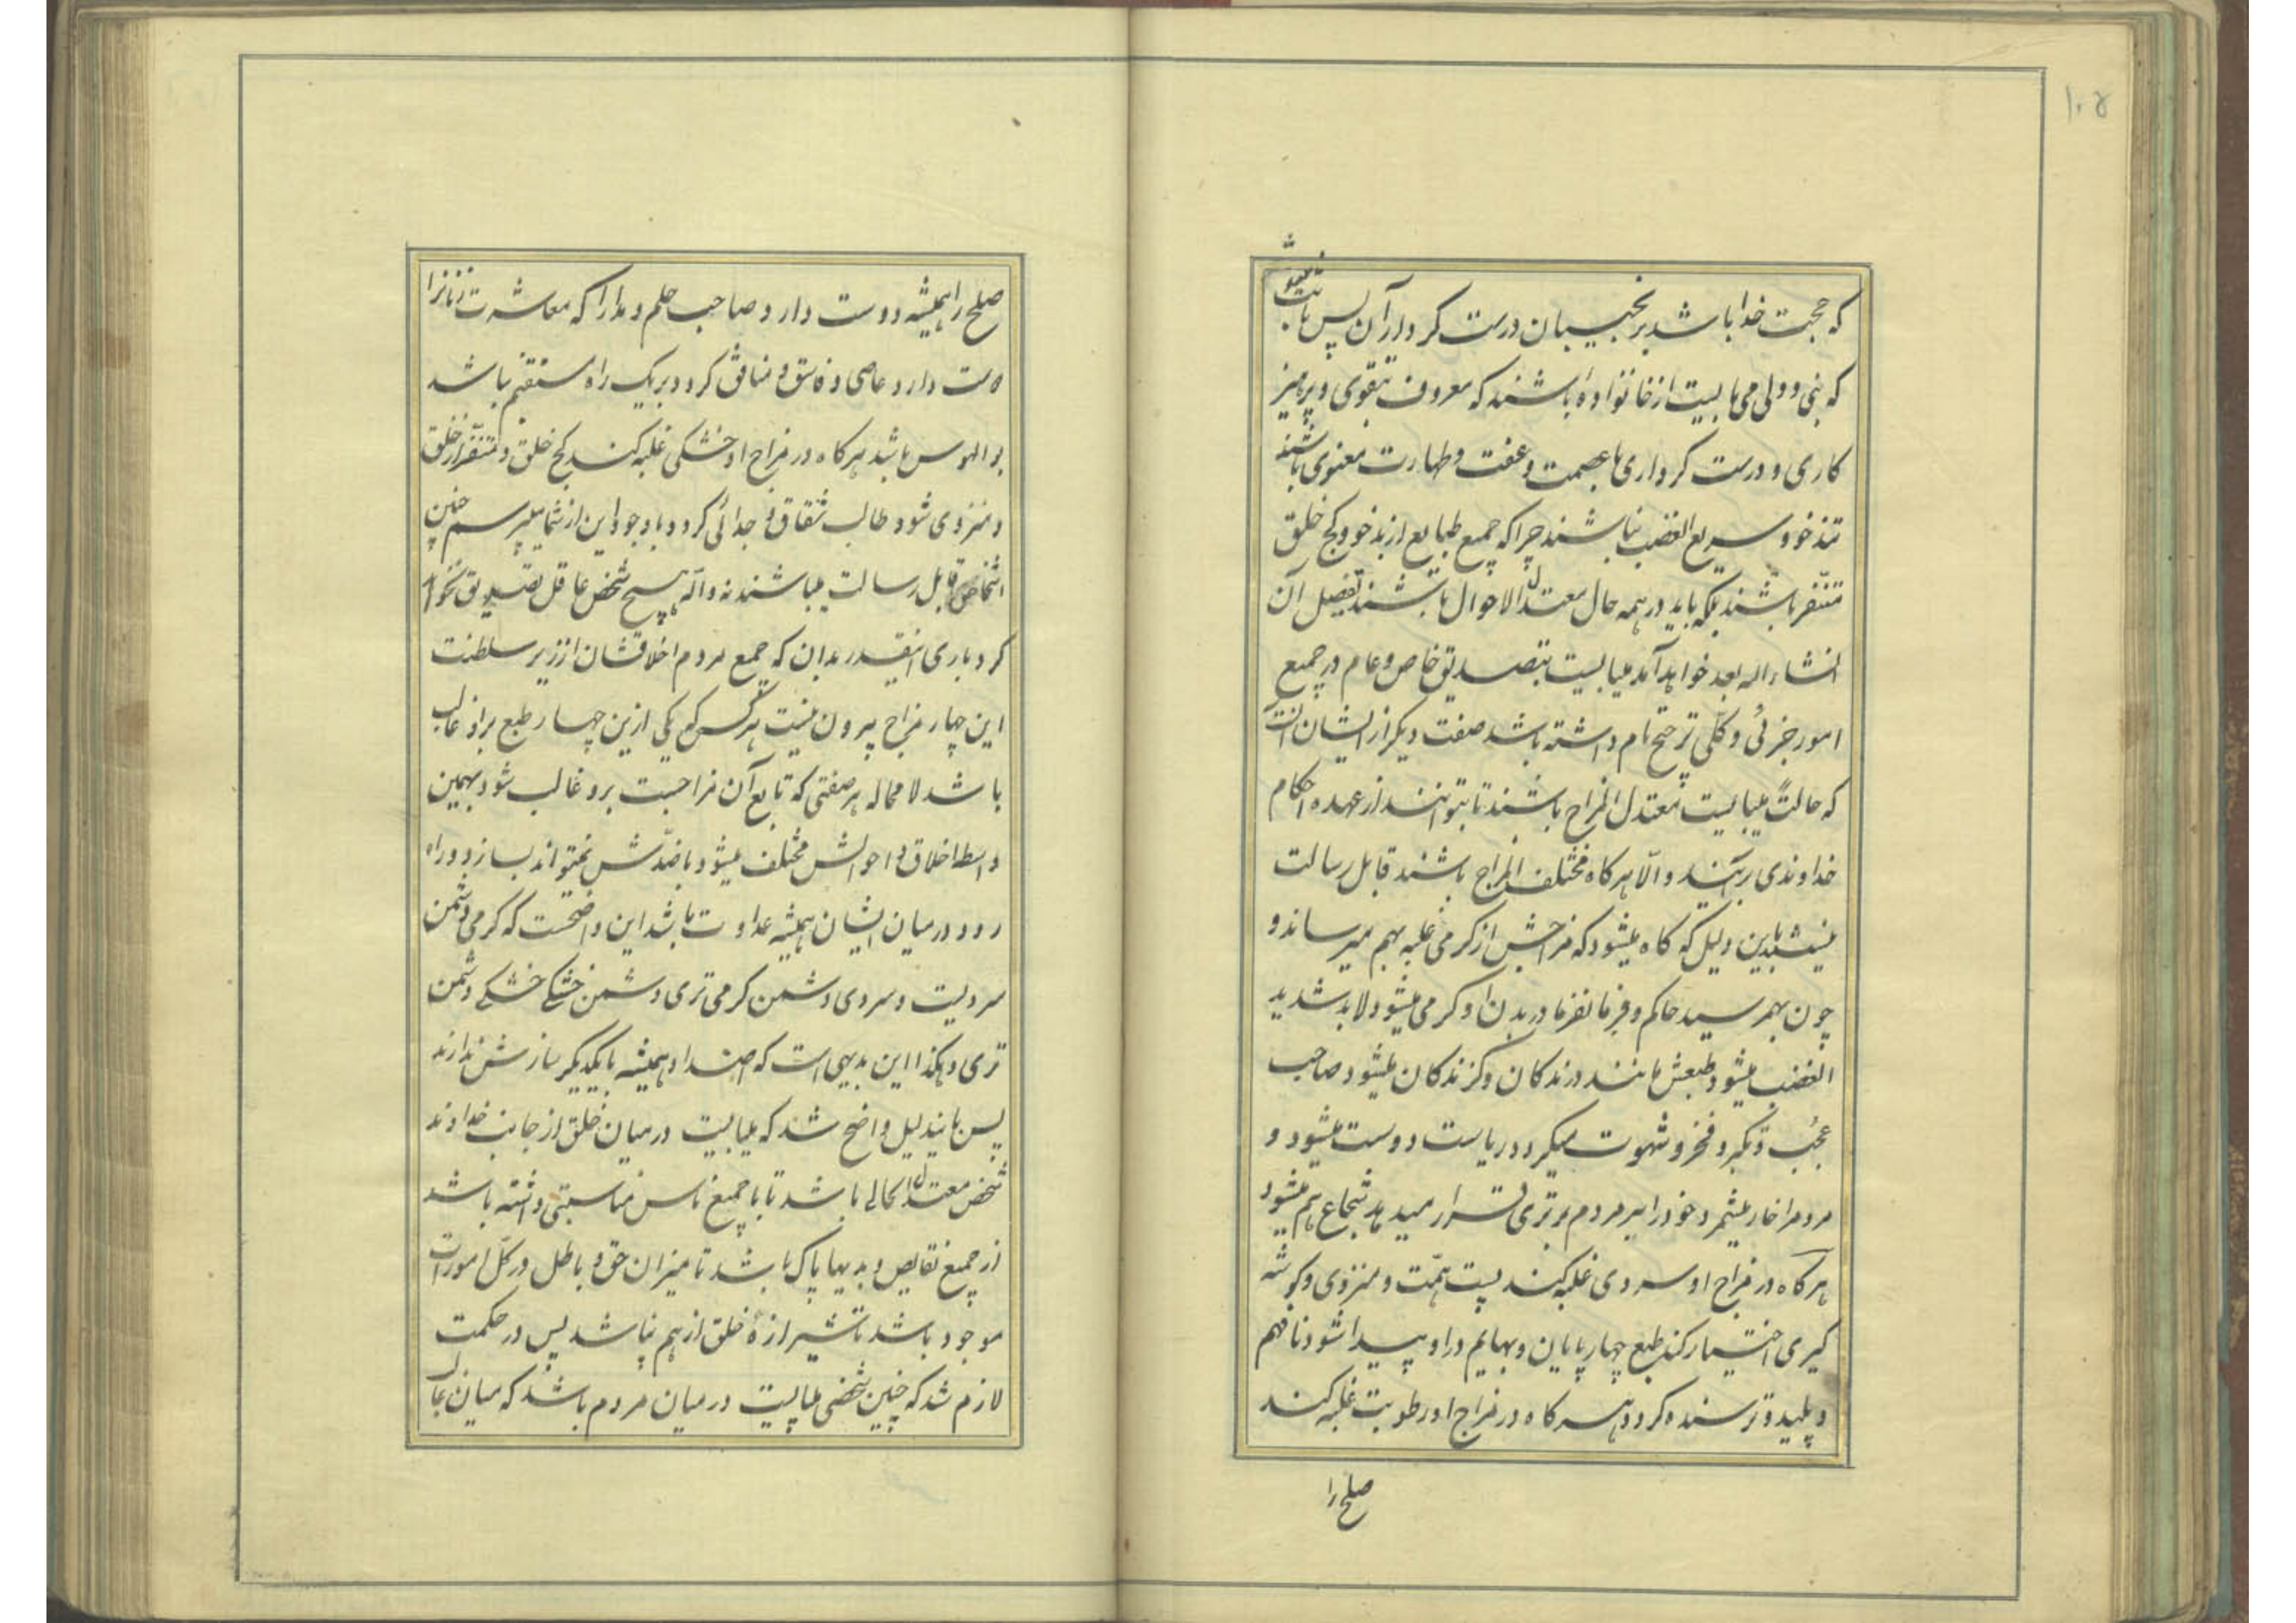 ۱۰۵
که حجت خدا باشد بر نجیبان درست کردار آن پس ثابت میشود
که نبی و ولی می بایست از خانواده باشند که معروف بتقوی و پرهیز
کاری و درست کرداری با عصمت و عفت و طهارت معنوی باشند
تندخو و سریع الغضب نباشند چرا که جمیع طبایع از بدخو و کج خلق
متنفر باشند بلکه باید در همه حال معتدل الاحوال باشند تفصیل آن
انشاءاله بعد خواهد آمد میبایست بتصدیق خاص و عام در جمیع
امور جزئی و کلی ترجیح تام داشته باشد صفت دیگر از ایشان آنست
که حالت میبایست معتدل المزاج باشند تا بتوانند از عهده احکام
خداوندی برآیند و الّا هرکاه مختلف المزاج باشند قابل رسالت
نیستند باین دلیل که کاه میشود که مزاجش از کرمی غلبه بهم میرساند و
چون بهمرسید حاکم و فرمانفرما در بدن او کرمی میشود لابد شدید
الغضب میشود طبعش مانند درندکان و کزندکان میشود صاحب
عجب و تکبر و فخر و شهوت میکردد ریاست دوست میشود و
مردمرا خار میشمرد خود را بر مردم برتری قرار میدهد شجاع هم میشود
هرکاه در مزاج او سردی غلبه کند پست همّت و منزوی و کوشه
کیری اختیار کند طبع چهارپایان و بهایم در او پیدا شود نافهم
و پلید و ترسنده کردد هرکاه در مزاج او رطوبت غلبه کند
صلح را
صلح را همیشه دوست دارد صاحب حلم و مدارا که معاشرت زنانرا
دوست دارد عاصی و فاسق و منافق کردد بر یک راه مستقیم نباشد
بوالهوس باشد هرکاه در مزاج او خشکی غلبه کند کج خلق و متنفر از خلق
و منزوی شود طالب شقاق و جدائی کردد با وجود این از شما میپرسم چنین
اشخاص قابل رسالت میباشند نه واله هیچ شخص عاقل تصدیق نخواهد
کرد باری اینقدر بدان که جمیع مردم اخلاقشان از زیر سلطنت
این چهار مزاج بیرون نیست هر کس که یکی ازین چهار طبع بر او غالب
باشد لامحاله هر صفتی که تابع آن مزاجست برو غالب شود بهمین
واسطه اخلاق و احوالش مختلف میشود با ضدّش نمیتواند بسازد و راه
رود در میان ایشان همیشه عداوت باشد این واضحست که کرمی دشمن
سردیست و سردی دشمن کرمی تری دشمن خشکی خشکی دشمن
تری و هکذا این بدیهی است که اضداد همیشه با یکدیگر سازش ندارند
پس باین دلیل واضح شد که میبایست در میان خلق از جانب خداوند
شخص معتدل الحالی باشد تا با جمیع ناس مناسبتی داشته باشد
از جمیع نقایص و بدیها پاک باشد تا میزان حق و باطل در کل امورات
موجود باشد تا شیرازهٔ خلق از هم نپاشد پس در حکمت
لازم شد که چنین شخصی میبایست در میان مردم باشد که میان